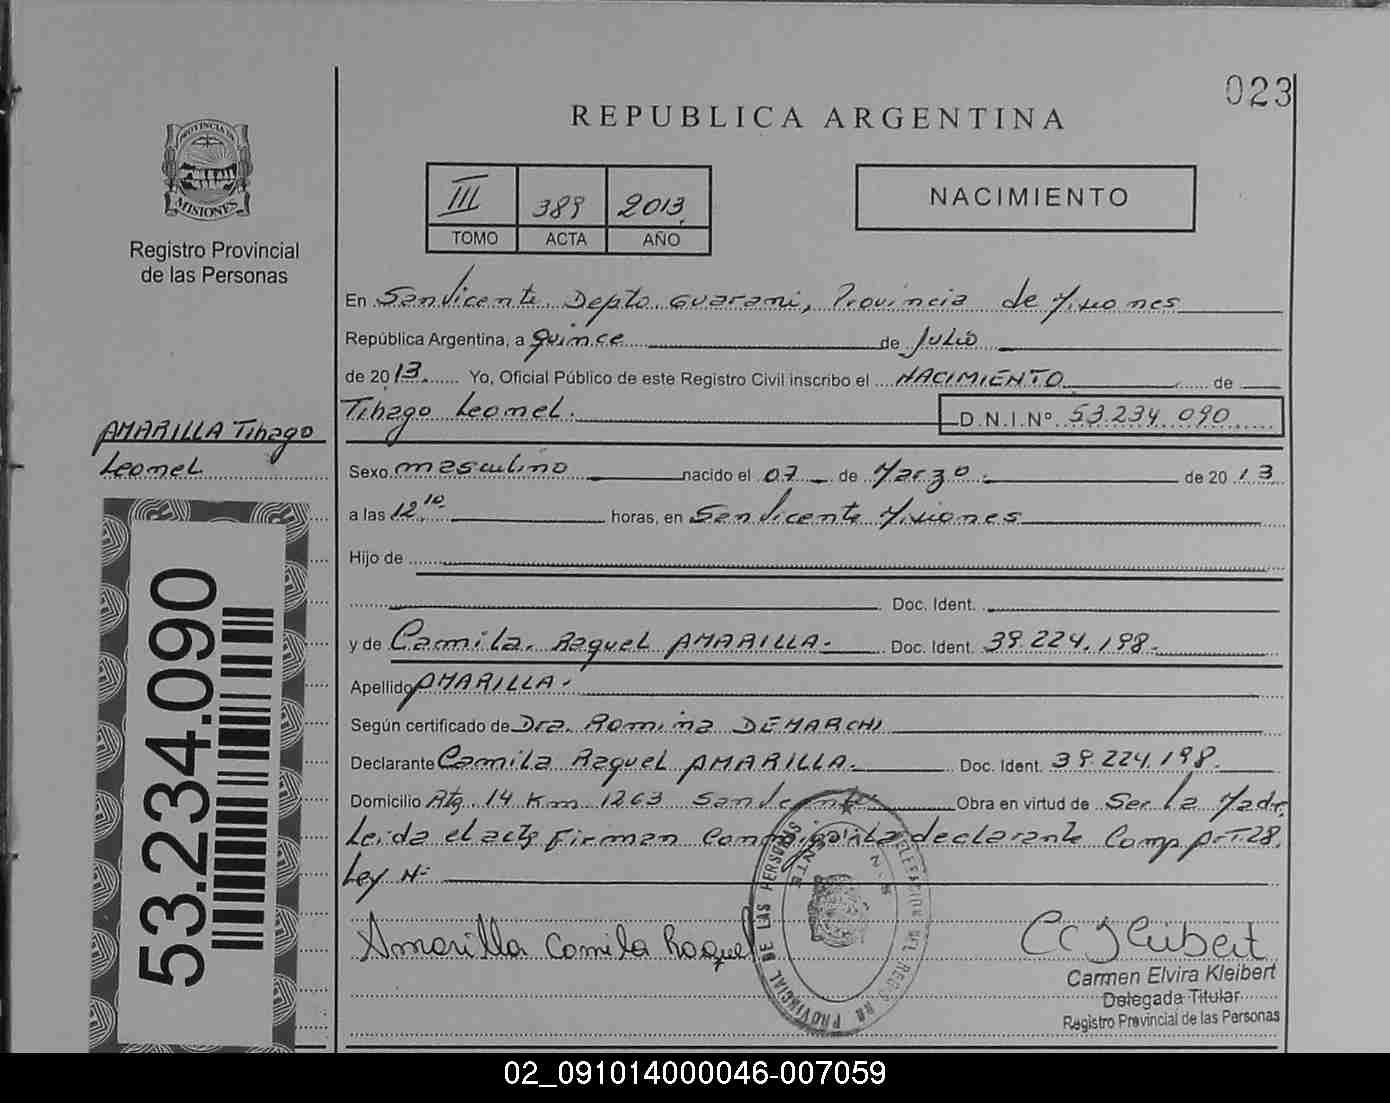 023
REPUBLICA ARGENTINA
PROVINCIA DE
MISIONES
Registro Provincial
de las Personas
III 389 2013
TOMO ACTA AÑO
NACIMIENTO
En San Vicente Depto. Guarani, Provincia de Misiones
República Argentina, a quince de Julio
de 2013 Yo, Oficial Público de este Registro Civil inscribo el NACIMIENTO de
Tihago Leonel. D.N.I.Nº 53.234.090
AMARILLA Tihago
Leonel
53.234.090
Sexo masculino nacido el 07 de Marzo de 2013
a las 12,10 horas, en San Vicente Misiones
Hijo de
Doc. Ident.
y de Camila Raquel AMARILLA- Doc. Ident. 39.224.198-
Apellido AMARILLA-
Según certificado de Dra. Romina DEMARCHI
Declarante Camila Raquel AMARILLA- Doc. Ident. 39.224.198-
Domicilio Ruta 14 Km 1263 San Vicente Obra en virtud de Ser la Madre
Leida el acta firman conmigo la declarante Comp Art. 28,
Ley Nº
Amarilla Camila Raquel
PROVINCIAL DE LAS PERSONAS
Carmen Elvira Kleibert
Delegada Titular
Registro Provincial de las Personas
02_091014000046-007059